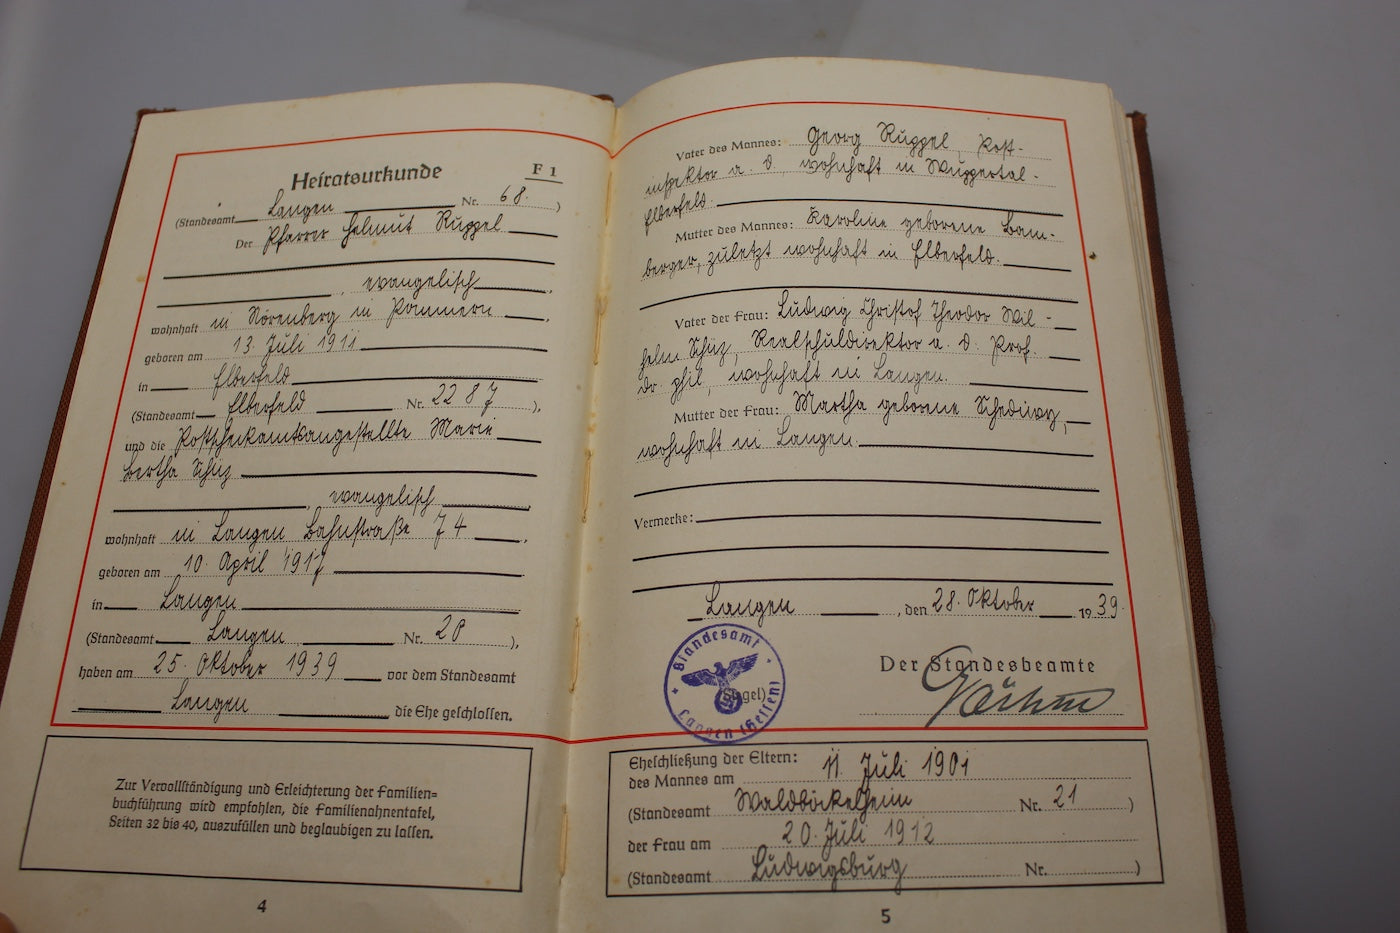 Heiratsurkunde F 1
(Standesamt Langen Nr. 68.)
Der Pfarrer Helmut Ruppel
, evangelisch,
wohnhaft in Nörenberg in Pommern,
geboren am 13. Juli 1911
in Elberfeld
(Standesamt Elberfeld Nr. 2287),
und die Postscheckamtsangestellte Marie
Bertha Schüz
, evangelisch,
wohnhaft in Langen Bahnstraße 74,
geboren am 10. April 1917
in Langen
(Standesamt Langen Nr. 20),
haben am 25. Oktober 1939 vor dem Standesamt
Langen die Ehe geschlossen.
Zur Vervollständigung und Erleichterung der Familien=
buchführung wird empfohlen, die Familienahnentafel,
Seiten 32 bis 40, auszufüllen und beglaubigen zu lassen.
4
Vater des Mannes: Georg Ruppel, Post-
inspektor a. D. wohnhaft in Wuppertal-
Elberfeld.
Mutter des Mannes: Karoline geborene Bam-
berger, zuletzt wohnhaft in Elberfeld.
Vater der Frau: Ludwig Christof Theodor Wil-
helm Schüz, Realschuldirektor a. D. Prof.
Dr. phil, wohnhaft in Langen.
Mutter der Frau: Martha geborene
wohnhaft in Langen.
Vermerke:
Langen, den 28. Oktober 1939.
Standesamt
(Siegel)
Langen (Hessen)
Der Standesbeamte
Eheschließung der Eltern:
des Mannes am 11. Juli 1901
(Standesamt Waldböckelheim Nr. 21)
der Frau am 20. Juli 1912
(Standesamt Ludwigsburg Nr.)
5